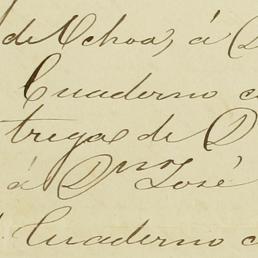 de Ochoa, á D
Cuaderno c
tregas de D
á Dn José
Cuaderno c